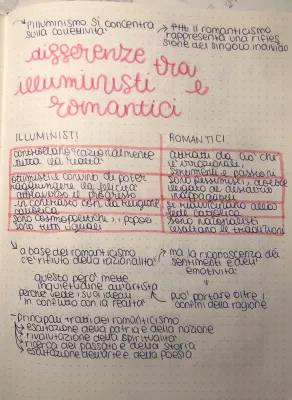 l'illuminismo si concentra
sulla collettività
il romanticismo
rappresenta una rifles
sione del singolo individuo
differenze tra
illuministi e
romantici
ILLUMINISTI
ROMANTICI
controllano razionalmente
tutta la realtà
attratti da ciò che
è irrazionale,
sentimenti e passioni
ottimisti e convinti di poter
raggiungere la felicità
attraverso il progresso
sono pessimisti, dolore
legato al desiderio
inappagabile
in contrasto con la religione
cattolica
si riavvicinano alla
fede cattolica
sono cosmopolitici, i popoli
sono tutti uguali
sono nazionalisti
esaltano le tradizioni
a base del romanticismo
c'è rifiuto della razionalità
ma la riconoscenza dei
sentimenti e dell'
emotività
questo però mette
inquietudine all'artista
perchè vede i suoi ideali
in conflitto con la realtà
può portare oltre i
confini della ragione
-principali tratti del romanticismo
esaltazione della patria e della nazione
rivalutazione della spiritualità
ricerca del passato e della storia
esaltazione dell'arte e della poesia